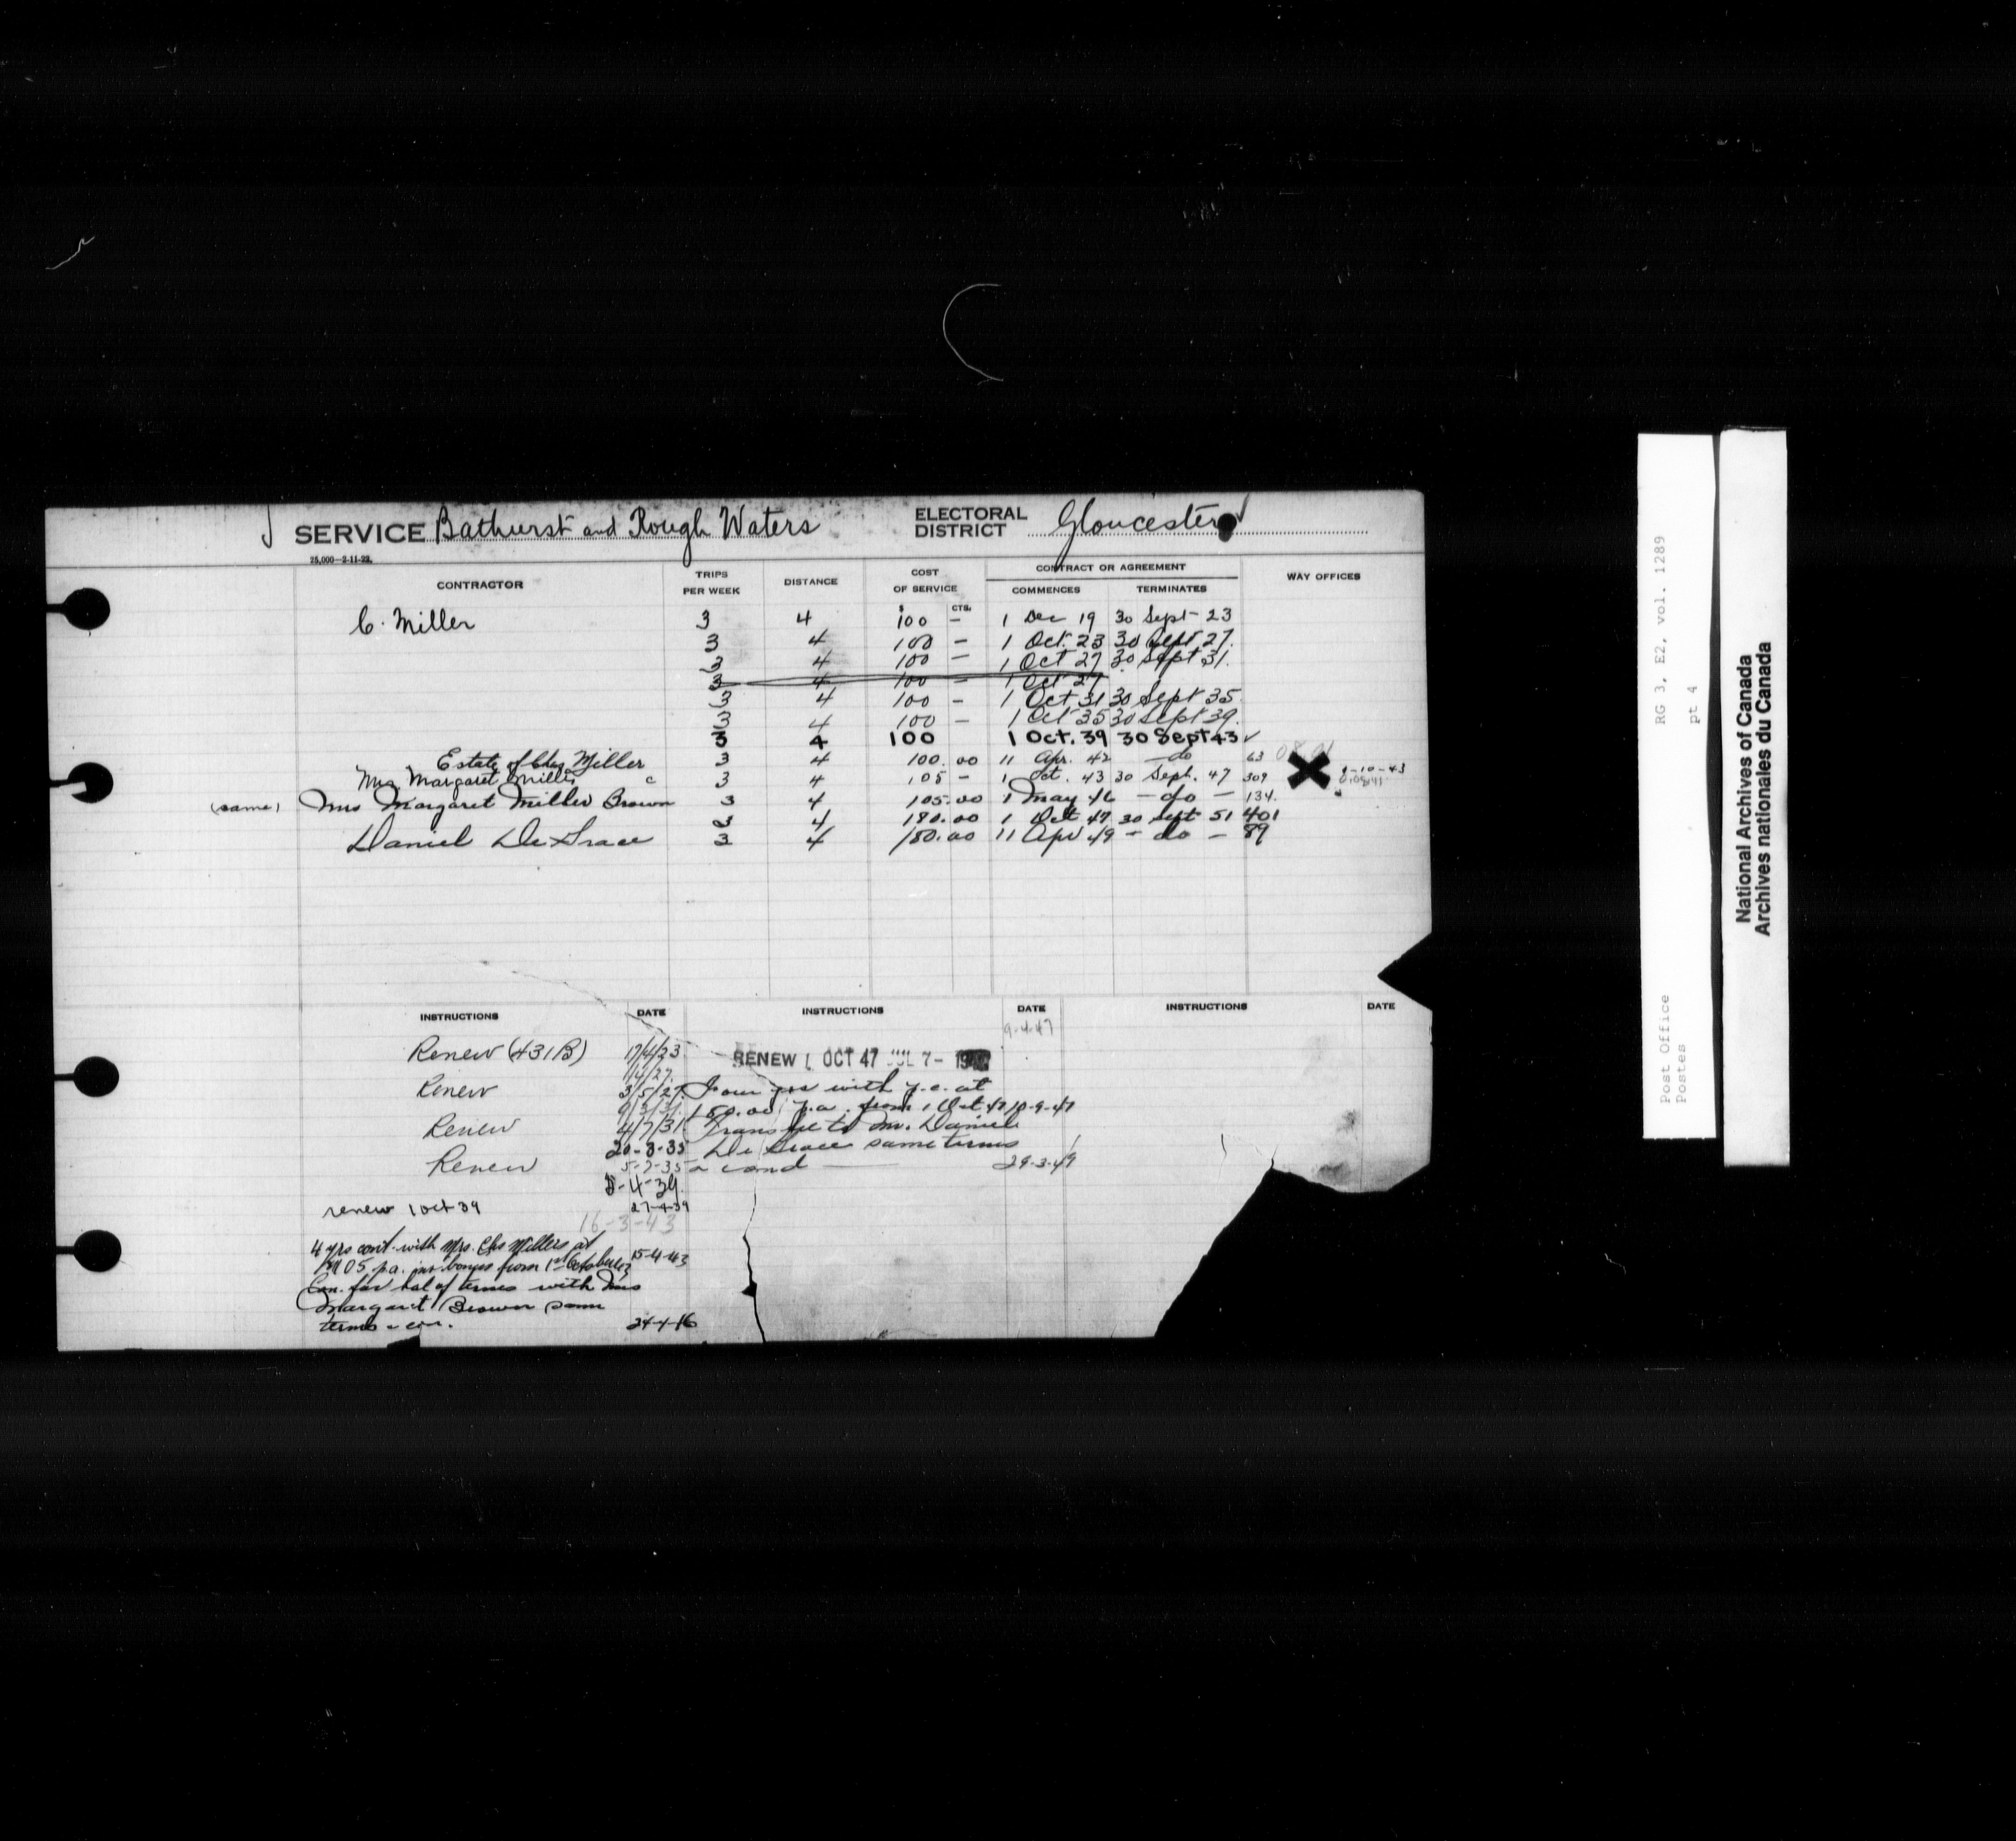 SERVICE Bathurst and Rough Waters ELECTORAL DISTRICT Gloucester
25,000—2-11-22.
CONTRACTOR TRIPS PER WEEK DISTANCE COST OF SERVICE CONTRACT OR AGREEMENT COMMENCES TERMINATES WAY OFFICES
$ CTS.
C. Miller 3 4 100 - 1 Dec 19 30 Sept 23
3 4 100 - 1 Oct. 23 30 Sept 27.
3 4 100 - 1 Oct 27 30 Sept 31.
3 4 100 - 1 Oct 27
3 4 100 - 1 Oct 31 30 Sept 35.
3 4 100 - 1 Oct 35 30 Sept 39.
3 4 100 1 Oct. 39 30 Sept 43 ✓
Estate of Chs Miller 3 4 100.00 11 Apr. 42 - do 63
Mrs. Margaret Miller c 3 4 105 - 1 Oct. 43 30 Sept. 47 309 1-10-43
(same) Mrs Margaret Miller Brown 3 4 105.00 1 May 46 - do - 134.
3 4 180.00 1 Oct 47 30 Sept 51 401
Daniel De Grace 3 4 180.00 11 Apr 49 - do - 89
INSTRUCTIONS DATE INSTRUCTIONS DATE INSTRUCTIONS DATE
Renew (431B) 17/4/23
Renew 3/5/27
Renew 4/7/31
20-3-35
Renew 5-7-35
5-4-39
renew 1 Oct 39 27-4-39
16-3-43
4 yrs cont. with Mrs. Chs Millers at
105 p.a. inc bonus from 1st October 43 15-4-43
Con. for bal of terms with Mrs
Margaret Brown same
terms & con. 24-4-46
9-4-47
RENEW 1 OCT 47 JUL 7- 194
Four yrs with p.c. at
180.00 p.a. from 1 Oct 47 10-9-47
Transfer to Mr. Daniel
De Grace same terms
& cond 29-3-49
RG 3, E2, vol. 1289
pt 4
Post Office
Postes
National Archives of Canada
Archives nationales du Canada